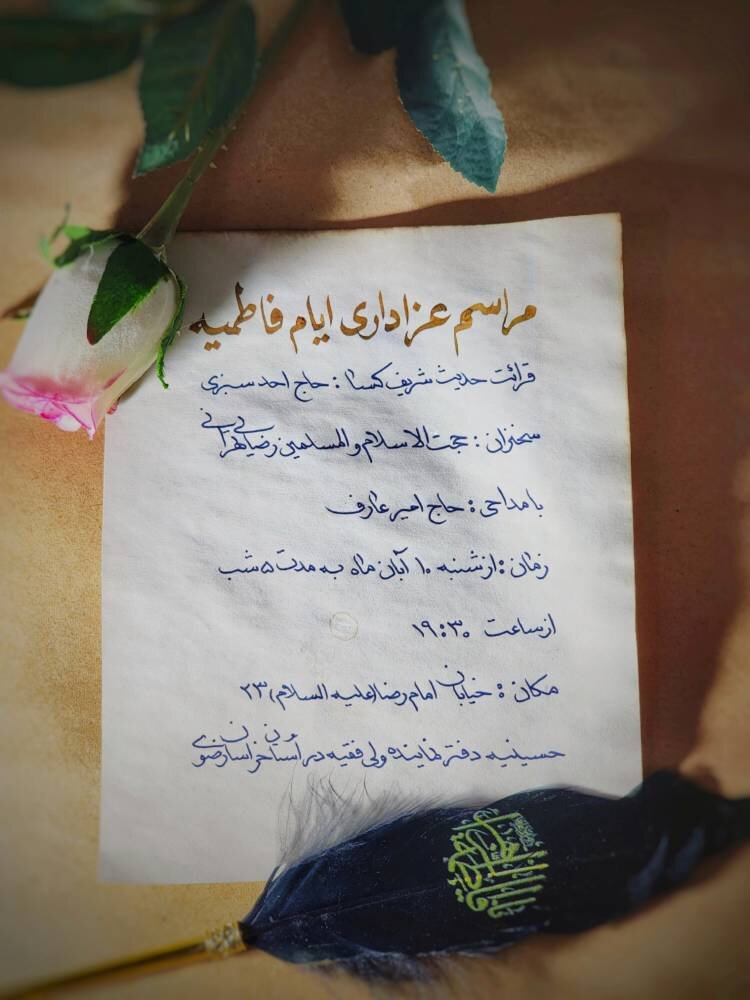 مراسم عزاداری ایام فاطمیه
قرائت حدیث شریف کساء : حاج احد سبزی
سخنران : حجت الاسلام والمسلمین رضایی تهرانی
بامداحی : حاج امیر عارف
زمان : از شنبه ۱۰ آبان ماه به مدت ۵ شب
از ساعت ۱۹:۳۰
مکان : خیابان امام رضا (علیه السلام) ۲۳
حسینیه دفتر نماینده ولی فقیه در استان خراسان رضوی